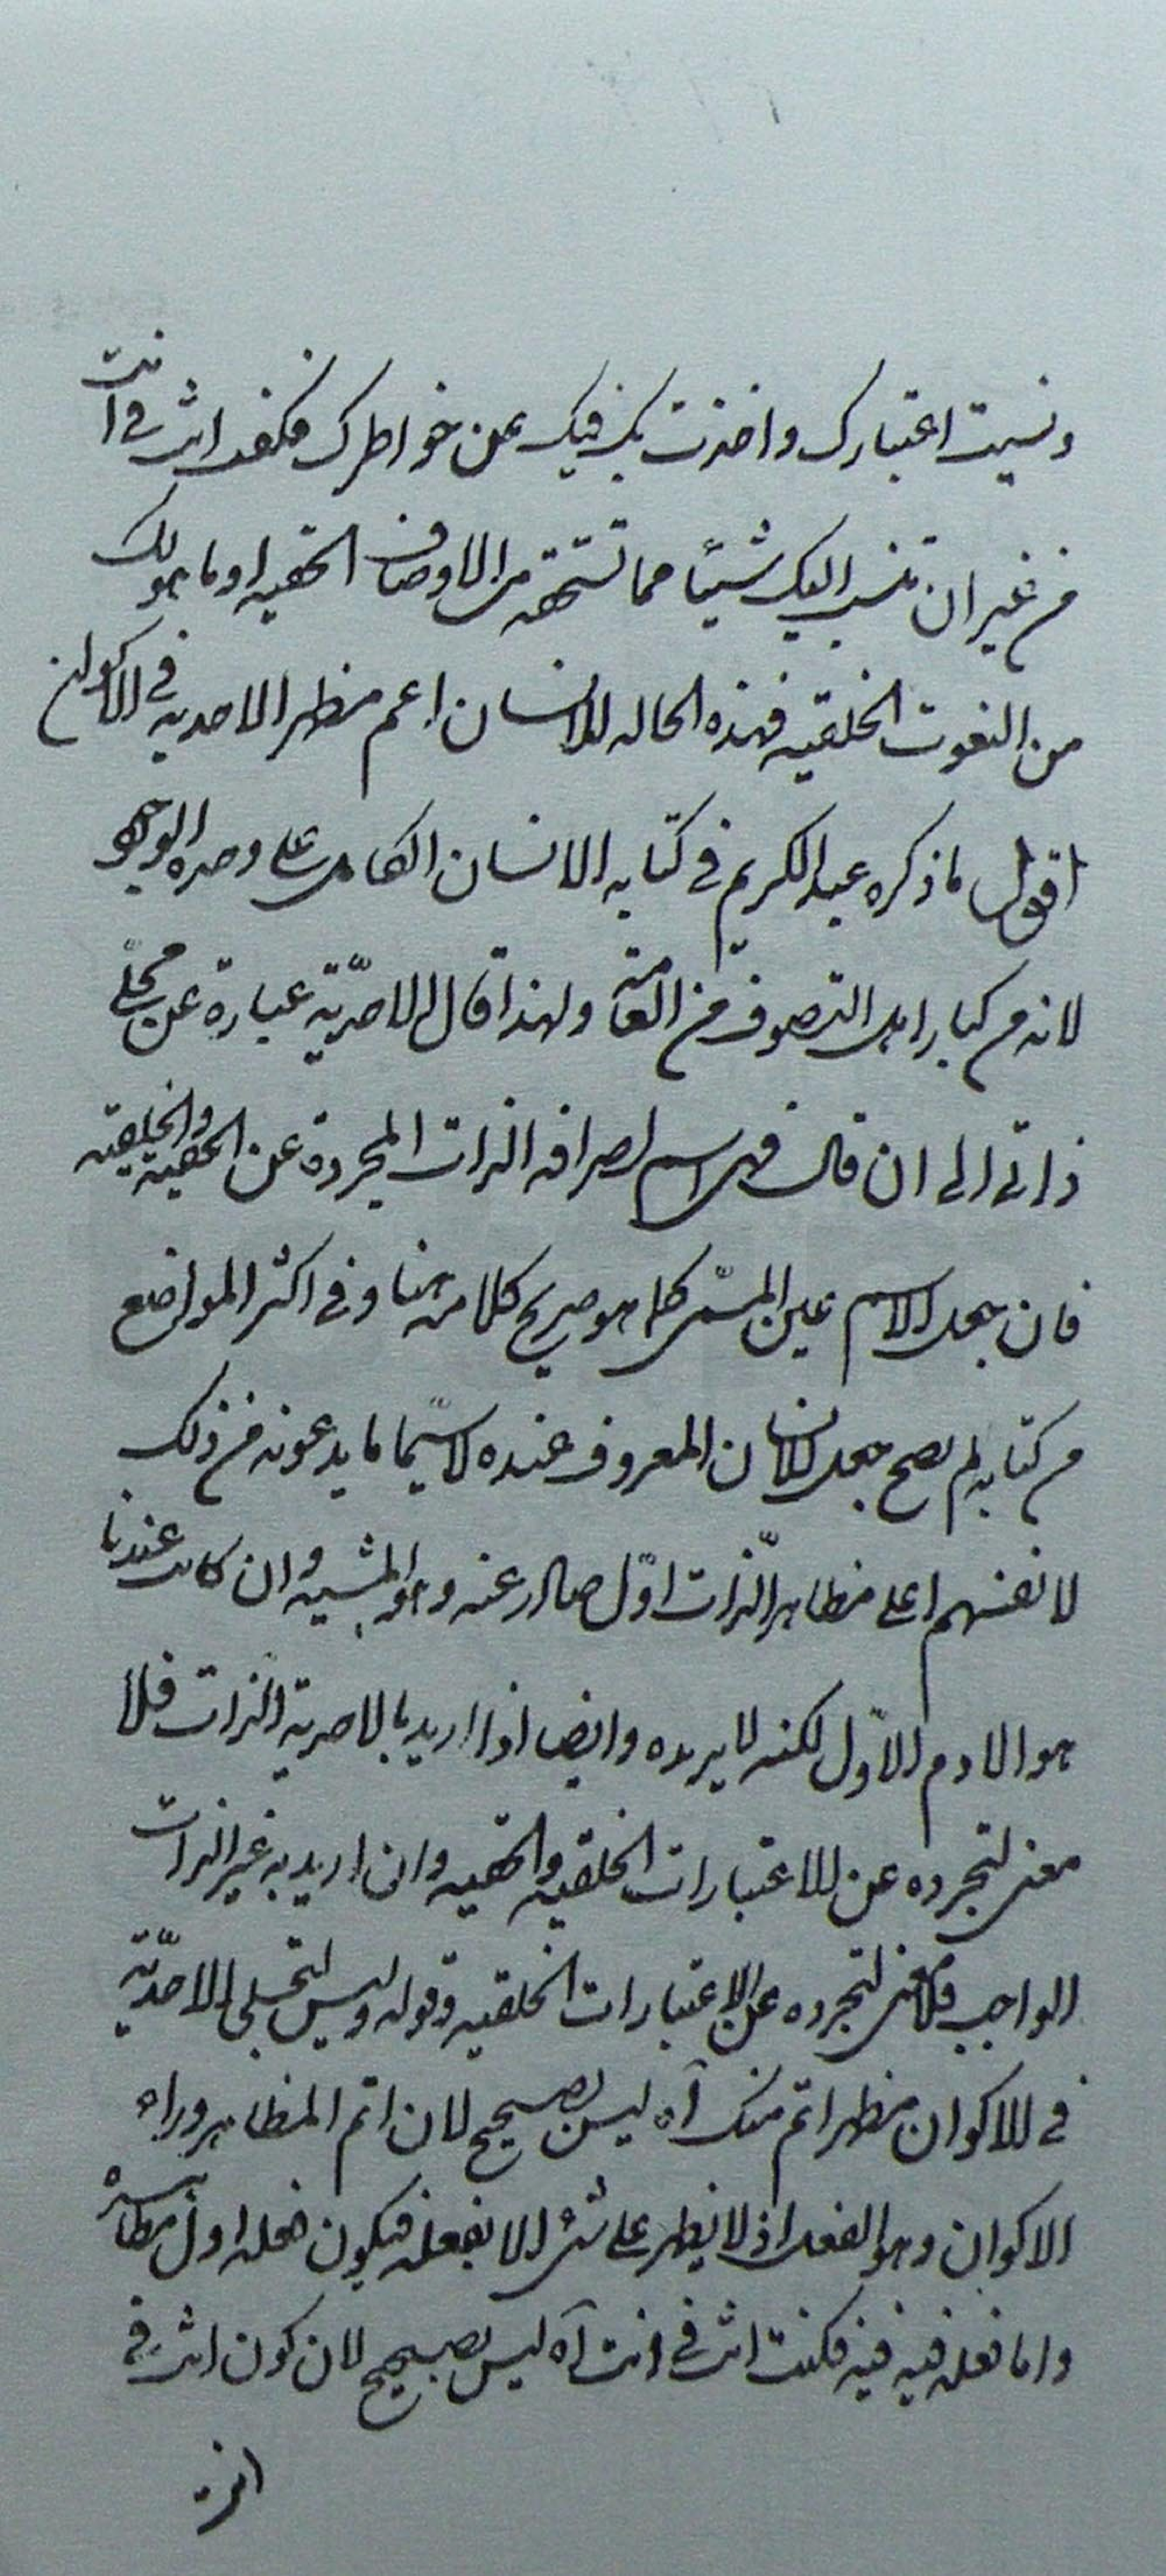 ونسیت اعتبارک واخذت بک فیک عن خواطرک فکنت انت فی انت
من غیر ان تنسب الیک شیئا مما تستحقه من الاوصاف الحقیه او ما هو لک
من النعوت الخلقیه فهذه الحاله للانسان اعم مظهر الاحدیه فی الاکوان
اقول ما ذکره عبد الکریم فی کتابه الانسان الکامل علی وحده الوجود
لانه من کبار اهل التصوف من العامّة ولهذا قال الاحدّیّة عبارة عن مجلّی
ذاتی الی ان قال فهی اسم لصرافه الذات المجردة عن الحقیة والخلقیه
فان جعل الاسم عین المسمّی کما هو صریح کلامه هنا وفی اکثر المواضع
من کتابه لم یصح جعل الانسان المعروف عنده لاسیّما ما یدعونه من ذلک
لانفسهم اعلی مظاهر الذات اوّل صادر عنه وهو المشیه وان کانت عندنا
هو الادم الاوّل لکنه لا یریده وایضا اذا ارید بالاحدیة الذات فلا
معنی لتجرده عن الاعتبارات الخلقیه والحقیه وان ارید به غیر الذات
الواجب فلا معنی لتجرده عن الاعتبارات الخلقیه وقوله ولیس لتجلی الاحدّیّة
فی الاکوان مظهر اتم منک آه لیس بصحیح لان اتم المظاهر وراء
الاکوان وهو الفعل اذ لا یظهر علی شئ الا بفعله فیکون فعله اول مظاهره
واما فعله فیه فیه فکنت انت فی انت آه لیس بصحیح لان کون انت فی
انت